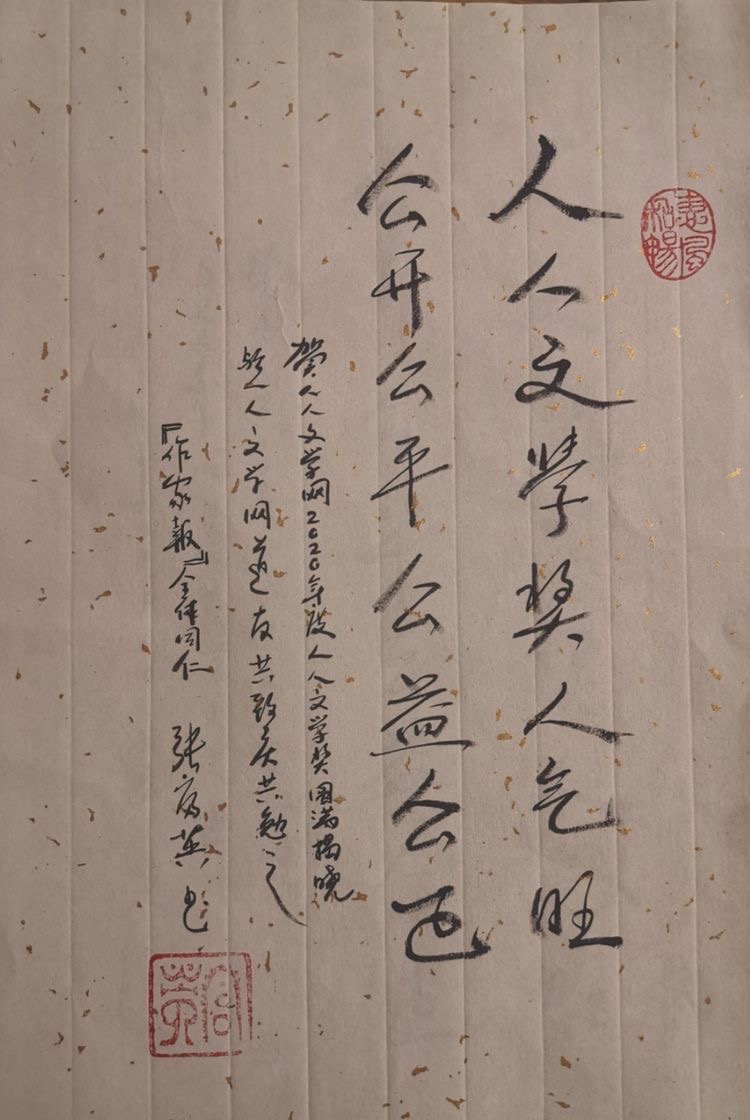 惠風和暢
人人文學奖人气旺
公开公平公益公
贺人人文学网2020年度人人文学奖圆满揭晓
人人文学网道友共致庆共勉之
『作家報』全体同仁 张富英书